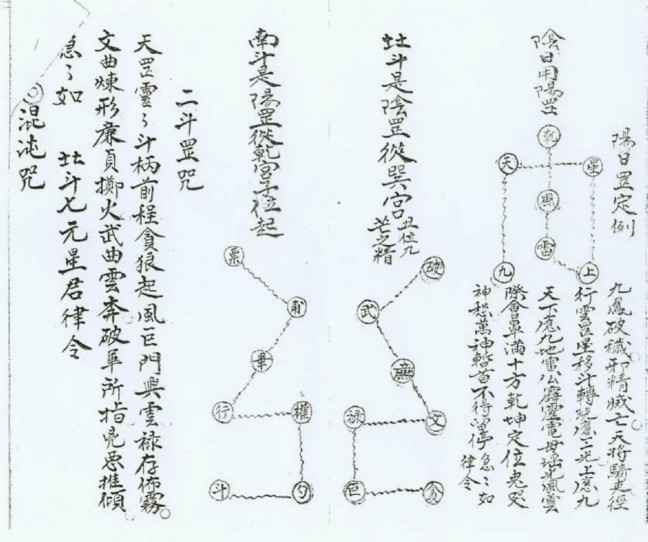 陽日罡定例
九鳳破穢邪精滅亡天將騎吏徑
行雲罡星移斗轉應三光上應九
天下應九地雷公霹靂電母風雲
際會罡滿十方乾坤定位鬼哭
神愁萬神暫首不得停急〻如
律令
陰日用陽罡
乾
天
星
風
雷
九
上
北斗是陰罡從巽宮
丑位九
芒之精
破
武
廉
文
祿
巨
貪
南斗是陽罡從乾宮子位起
票
甫
畢
行
權
斗
勺
二斗罡咒
天罡靈〻斗柄前程貪狼起風巨門興雲祿存佈霧
文曲煉形廉貞擲火武曲雲奔破軍所指兇惡推傾
急〻如 北斗七元星君律令
混沌咒